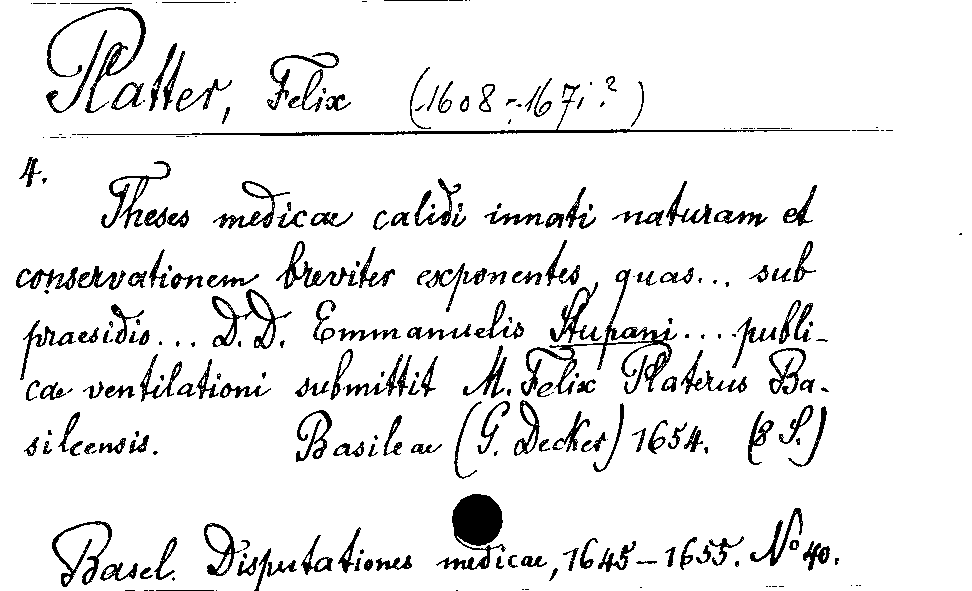 Platter, Felix (1608-1671?)
4.
Theses medicae calidi innati naturam et
conservationem breviter exponentes, quas... sub
praesidio... D.D. Emmanuelis Stupani.... publi-
cae ventilationi submittit M. Felix Platerus Ba-
sileensis. Basileae (G. Decker) 1654. (8 S.)
Basel. Disputationes medicae, 1645-1655. No 40.